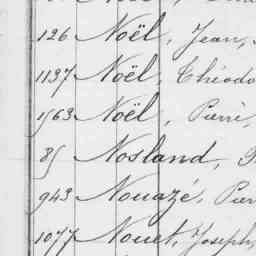 126 Noël, Jean,
1137 Noël, Théodo
1563 Noël, Pierre,
85 Nosland,
943 Nouazé, Pier
1077 Nouet, Joseph,